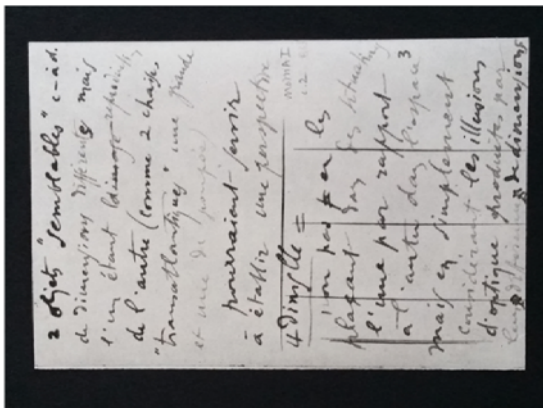 2 objets "semblables" c-à-d.
de dimensions différentes mais
l'un étant la réplique
de l'autre (comme 2 chaises
"transatlantiques" une grande
et une de poupée)
pourraient servir
à établir une perspective
4 dimelle =
non pas en les
plaçant dans des
l'une par rapport
à l'autre dans l'espace 3
mais en simplement
considérant les illusions
d'optique produites par
de dimensions